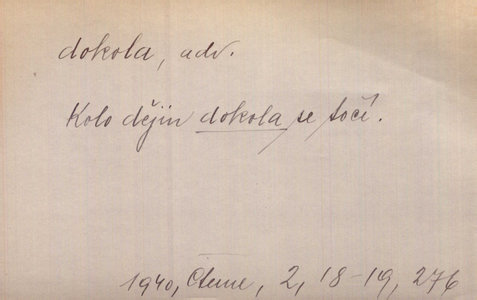 dokola, adv.
Kolo dějin dokola se točí.
1940, Čteme, 2, 18-19, 276